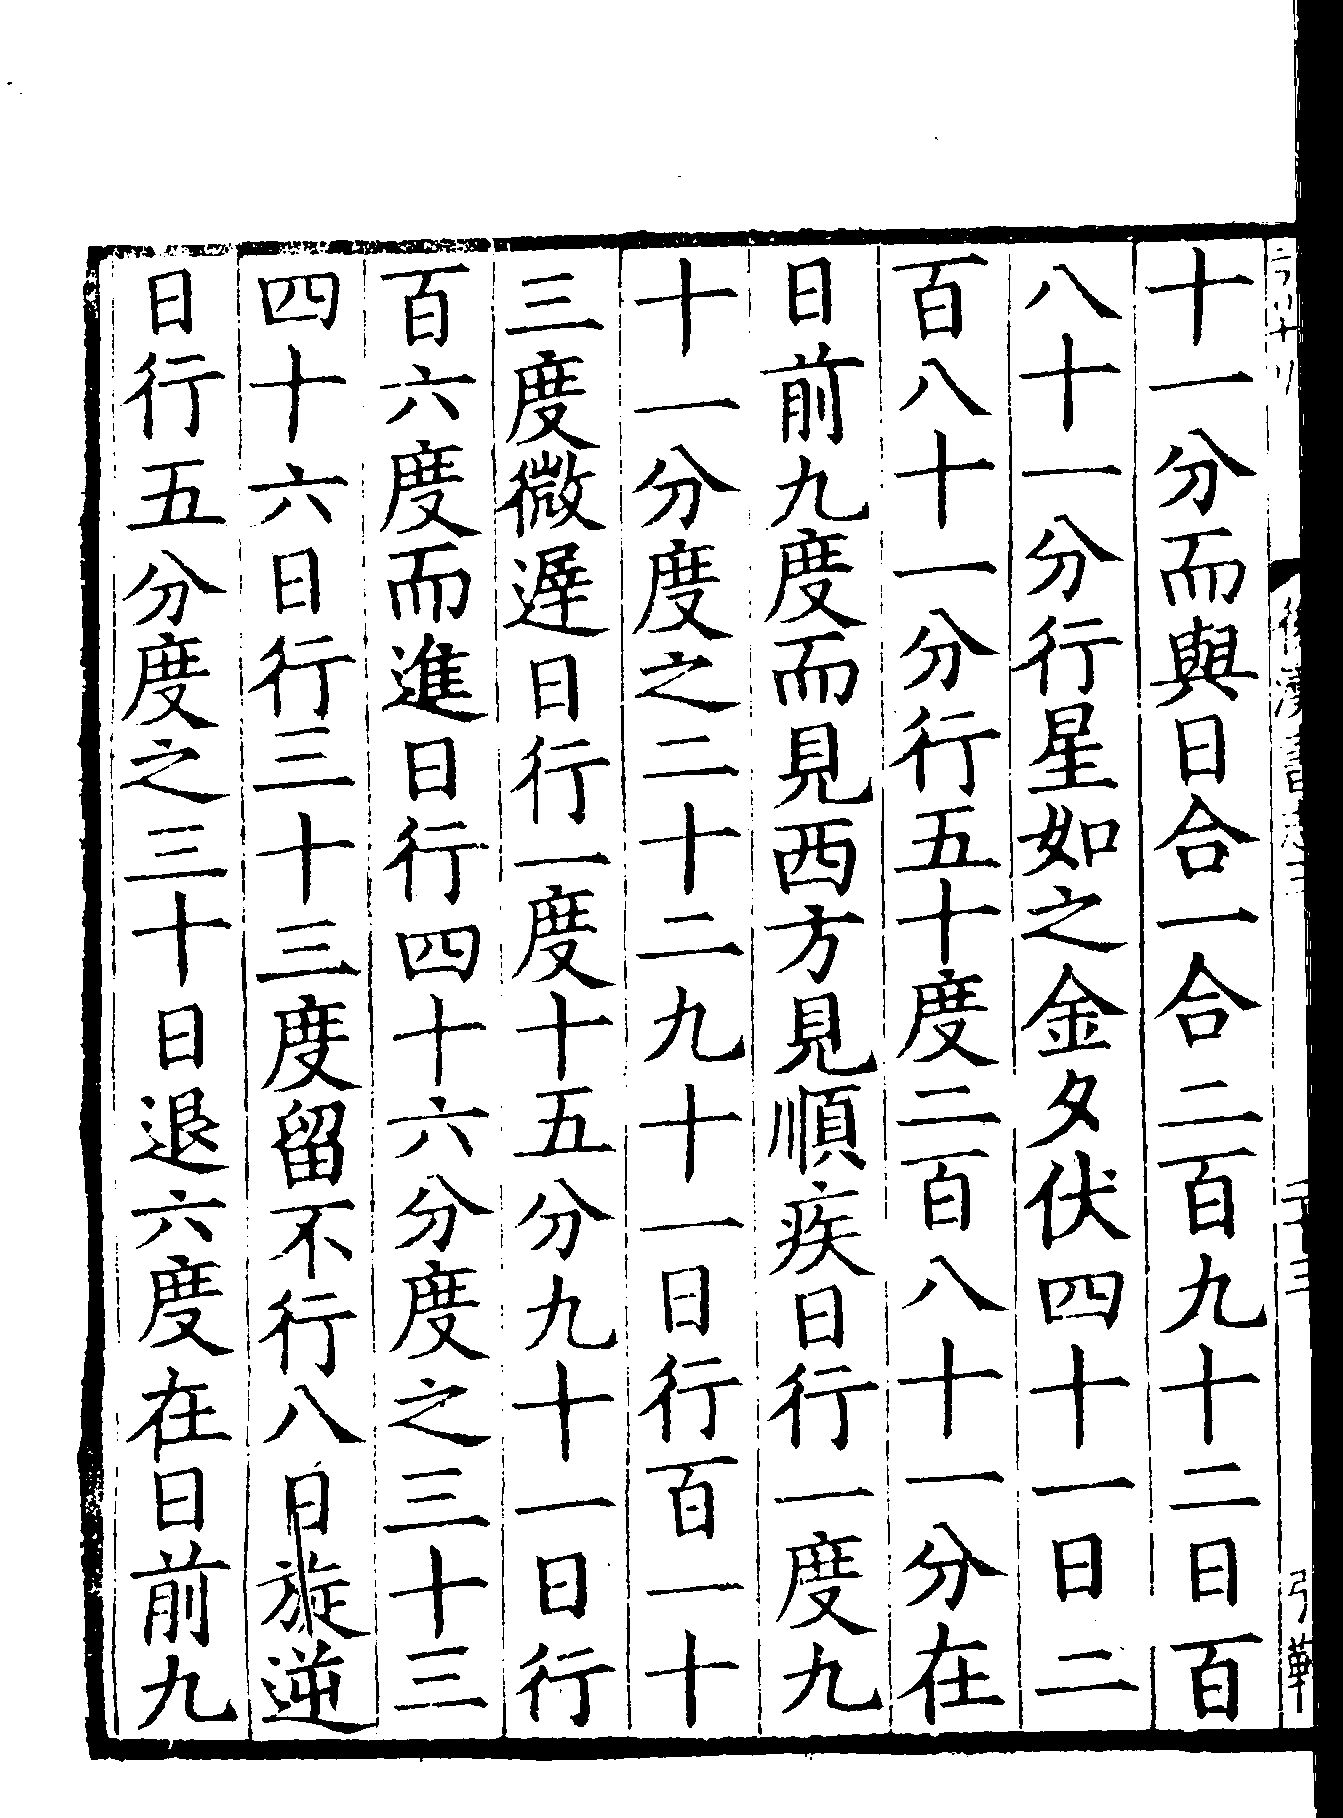 十一分而與日合一合二百九十二日百
八十一分行星如之金夕伏四十一日二
百八十一分行五十度二百八十一分在
日前九度而見西方見順疾日行一度九
十一分度之二十二九十一日行百一十
三度微遲日行一度十五分九十一日行
百六度而進日行四十六分度之三十三
四十六日行三十三度留不行八日旋逆
日行五分度之三十日退六度在日前九